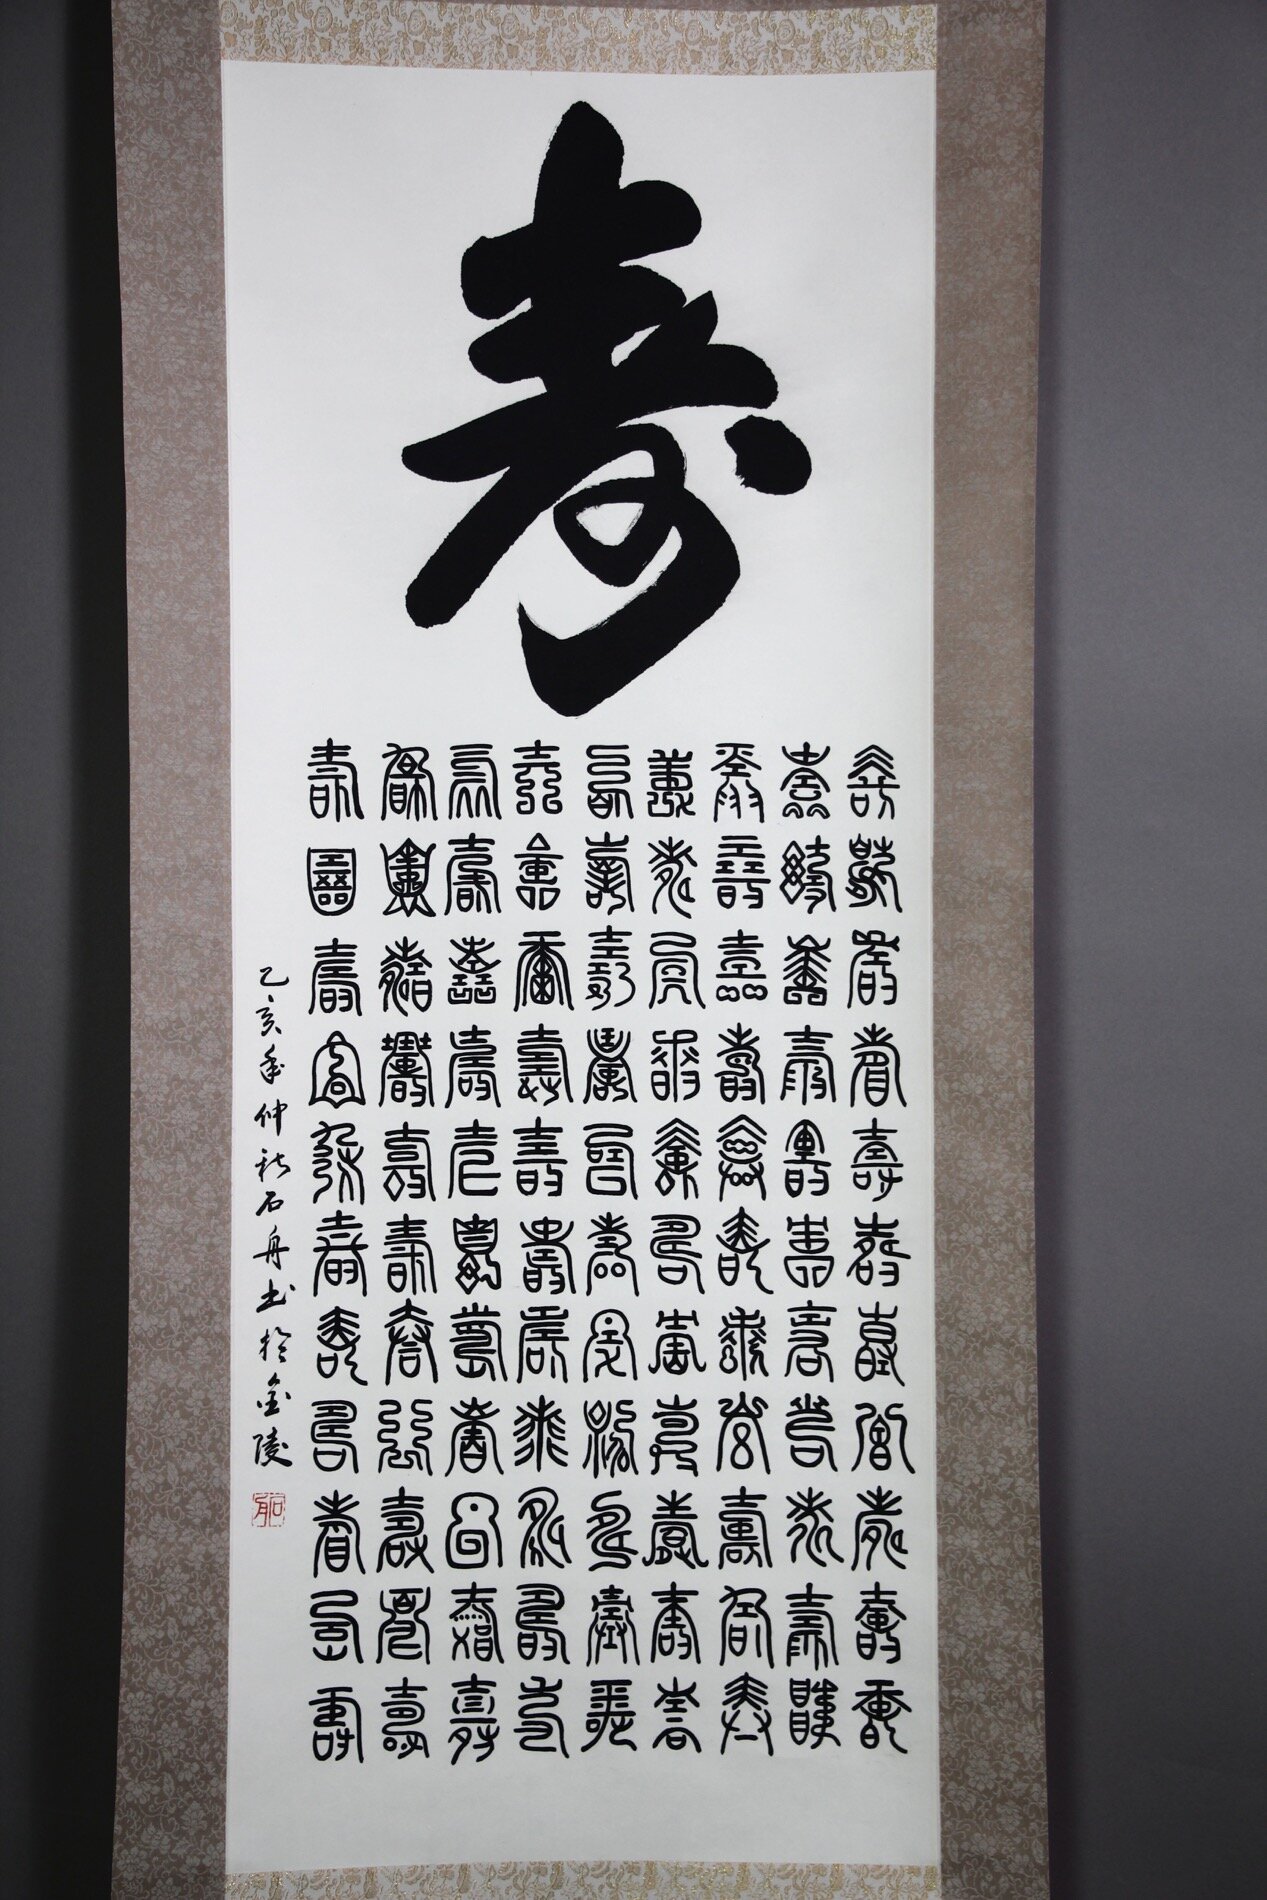 寿
壽壽壽壽壽壽壽壽壽壽壽
壽壽壽壽壽壽壽壽壽壽壽
壽壽壽壽壽壽壽壽壽壽壽
壽壽壽壽壽壽壽壽壽壽壽
壽壽壽壽壽壽壽壽壽壽壽
壽壽壽壽壽壽壽壽壽壽壽
壽壽壽壽壽壽壽壽壽壽壽
壽壽壽壽壽壽壽壽壽壽壽
壽壽壽壽壽壽壽壽壽壽壽
乙亥年仲秋石舟书於金陵